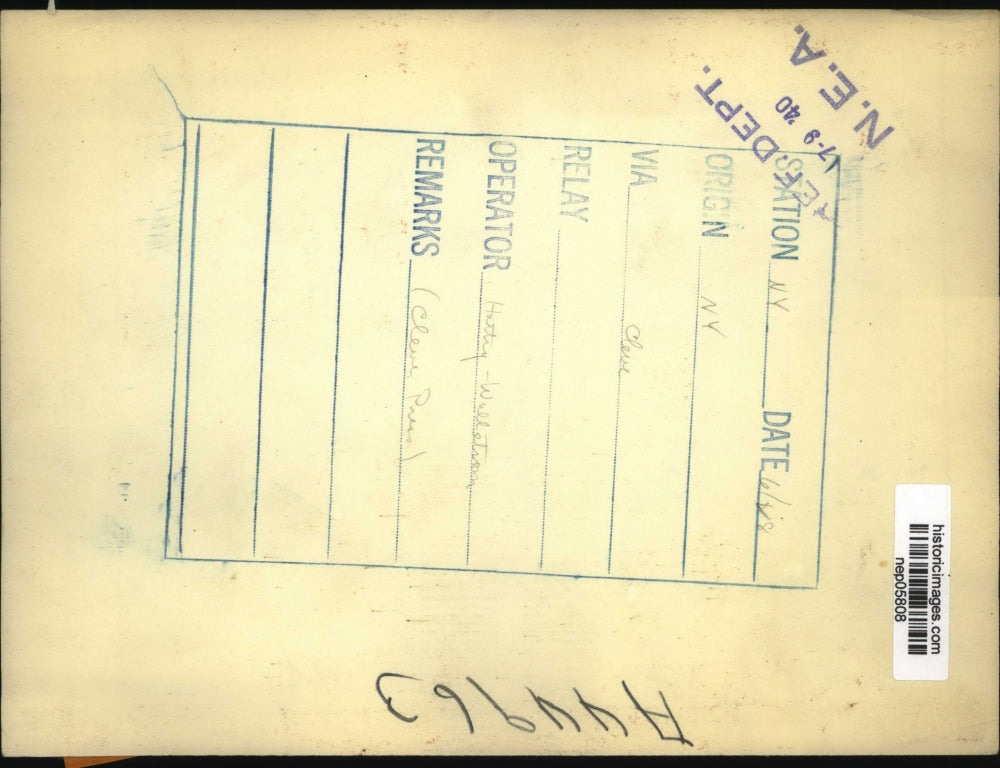 N.E.A.
7-9 '40
REF. DEPT.
STATION NY DATE 6/28
ORIGIN NY
VIA Cleve
RELAY
OPERATOR
REMARKS (Cleve Press)
historicimages.com
nep05808